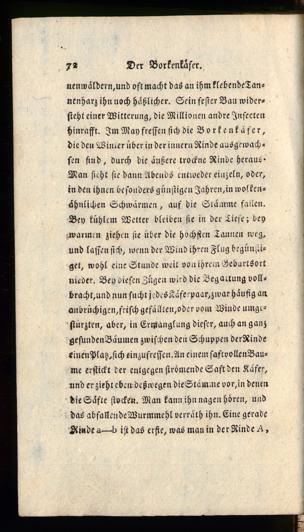 72 Der Borkenkäfer.
nenwäldern, und oft macht das an ihm klebende Tan-
nenharz ihn noch häßlicher. Sein fester Bau wider-
steht einer Witterung, die Millionen andre Insecten
hinrafft. Im May fressen sich die Borkenkäfer,
die den Winter über in der innern Rinde ausgewach-
sen sind, durch die äußere trockne Rinde heraus.
Man sieht sie dann Abends entweder einzeln, oder,
in den ihnen besonders günstigen Jahren, in wolken-
ähnlichen Schwärmen, auf die Stämme fallen.
Bey kühlem Wetter bleiben sie in der Tiefe; bey
warmen ziehen sie über die höchsten Tannen weg,
und lassen sich, wenn der Wind ihren Flug begünsti-
get, wohl eine Stunde weit von ihrem Geburtsort
nieder. Bey diesen Zügen wird die Begattung voll-
bracht, und nun sucht jedes Käferpaar, zwar häufig an
anbrüchigen, frisch gefällten, oder vom Winde umge-
stürzten, aber, in Ermanglung dieser, auch an ganz
gesunden Bäumen zwischen den Schuppen der Rinde
einen Platz, sich einzufressen. An einem saftvollen Bau-
me erstickt der entgegen strömende Saft den Käfer,
und er zieht eben deßwegen die Stämme vor, in denen
die Säfte stocken. Man kann ihn nagen hören, und
das abfallende Wurmmehl verräth ihn. Eine gerade
Rinde a—b ist das erste, was man in der Rinde A,